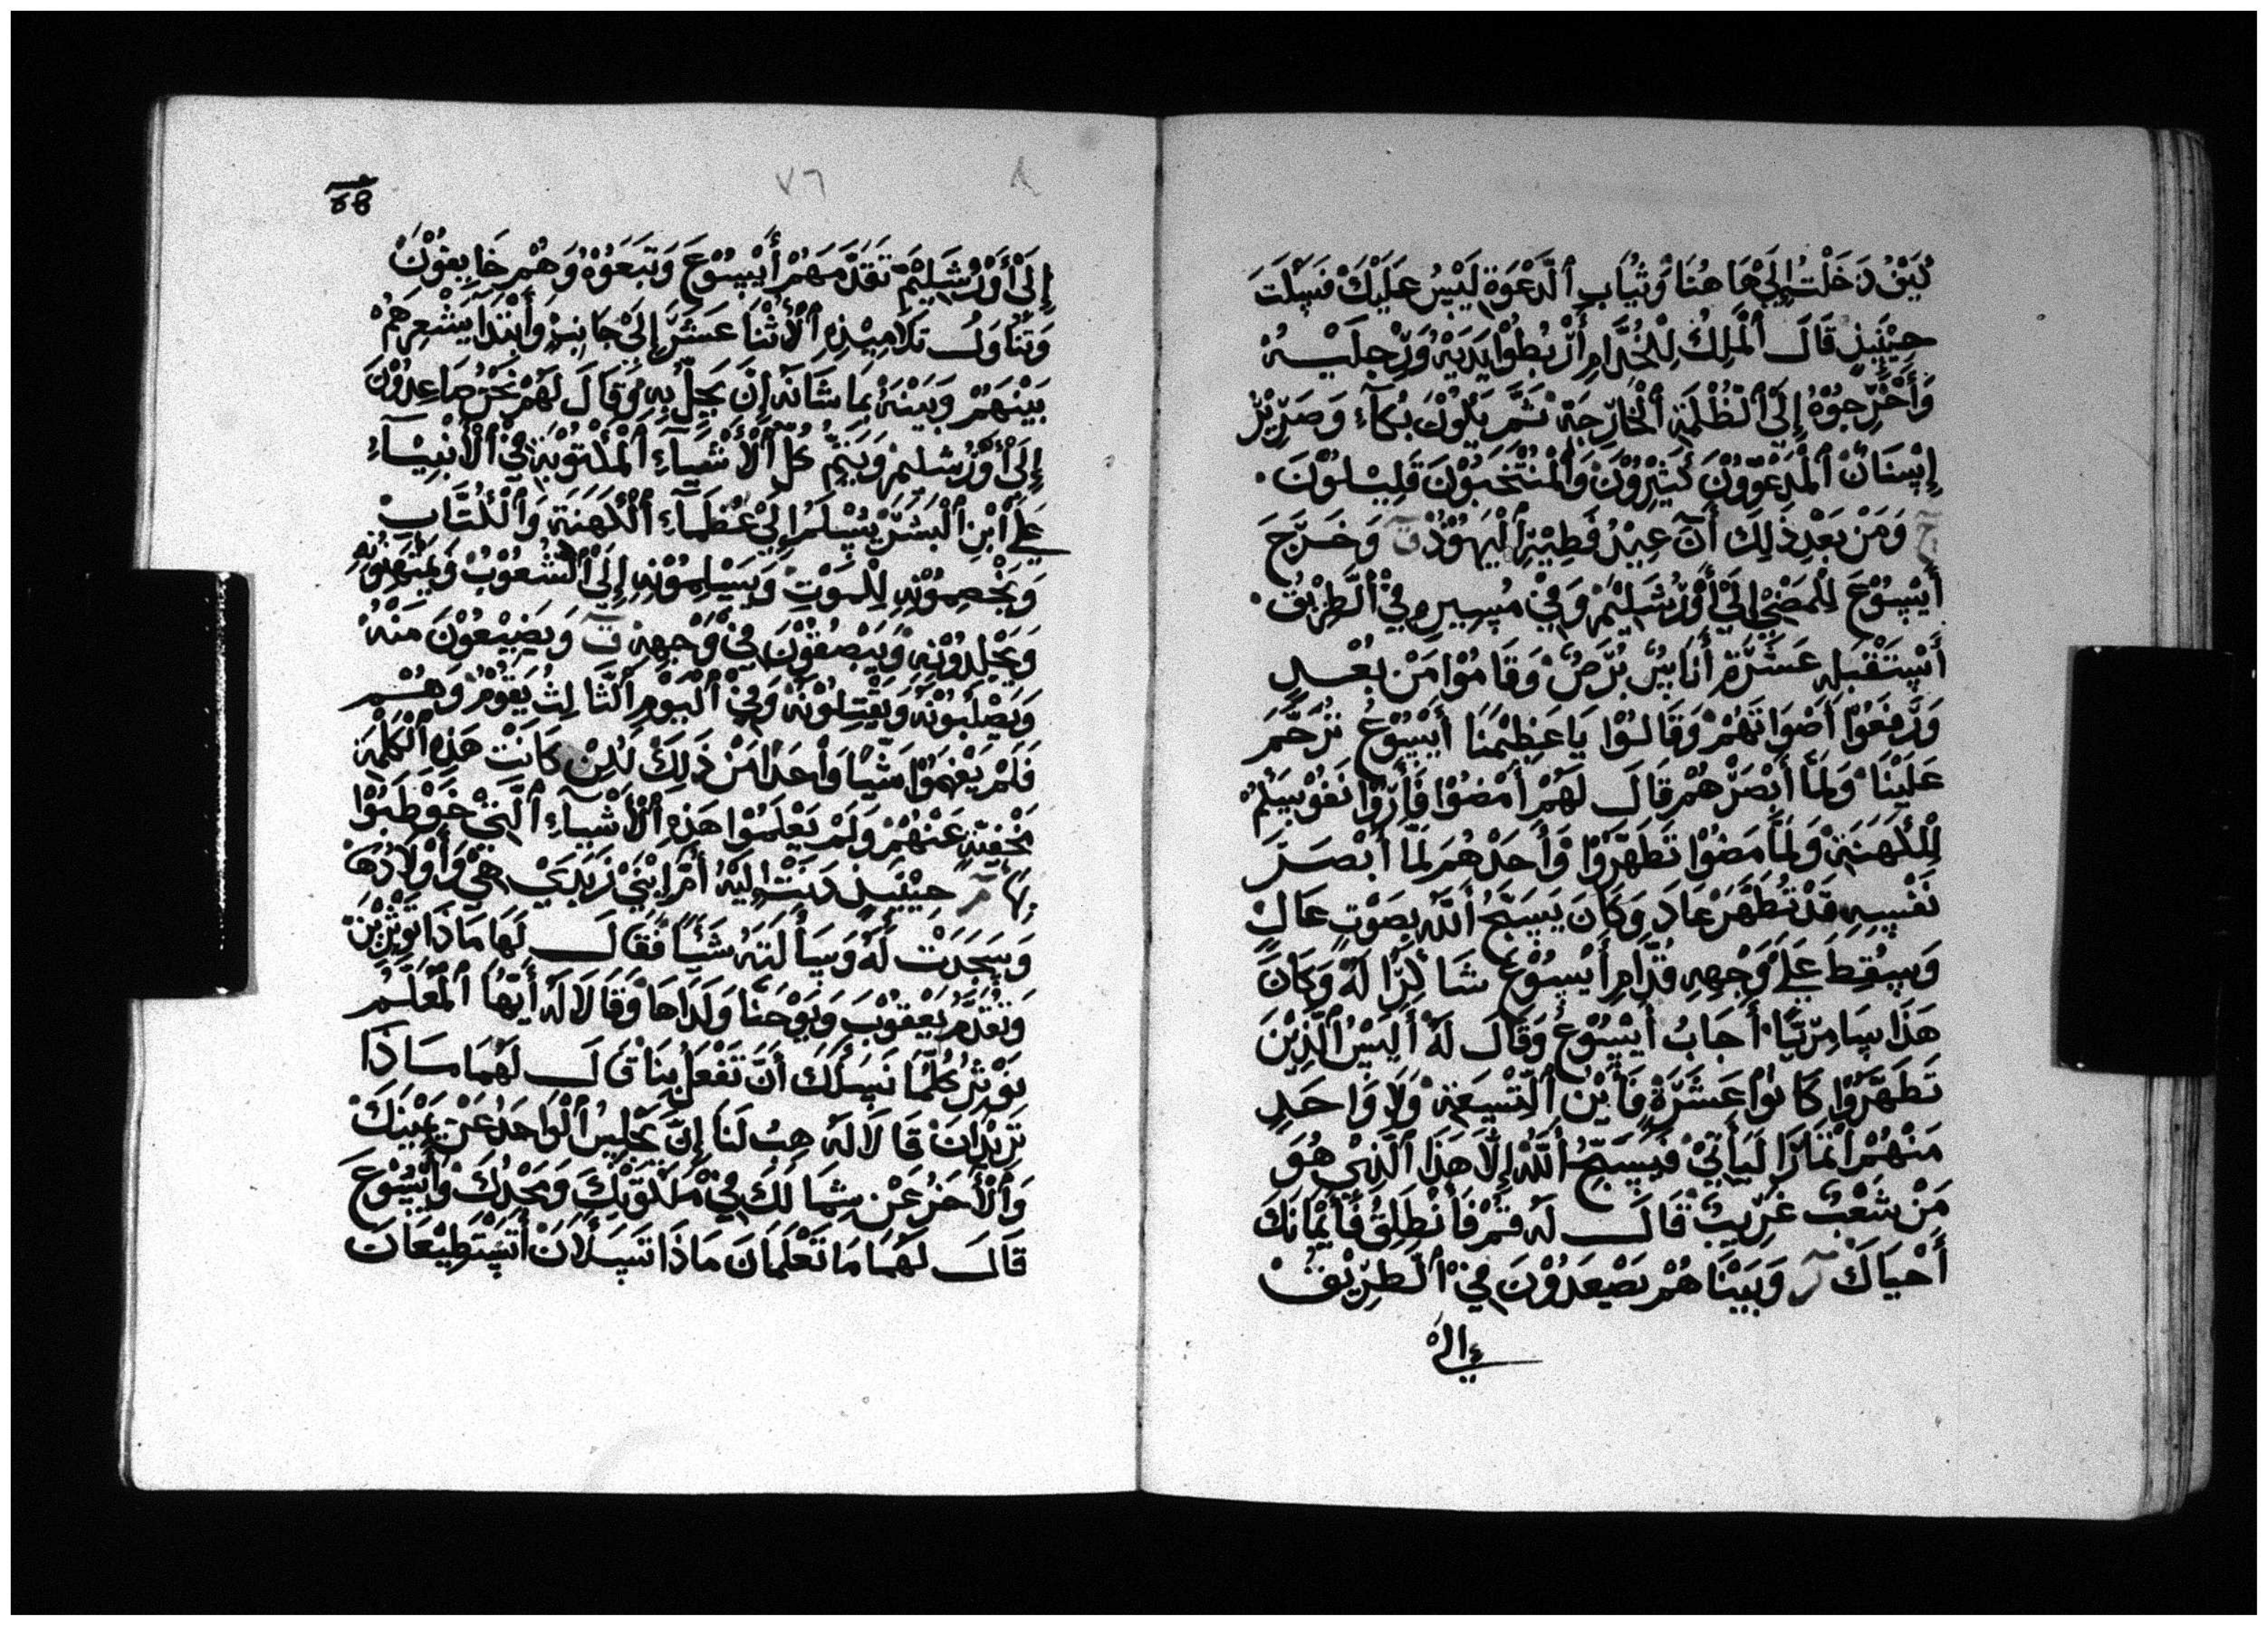 كَيْفُ دَخَلْتَ إِلَيْ هَا هُنَا وَثْيَابِ ٱلدَّعْوَةِ لَيْسُ عَلَيْكَ فَسَكَتَ
حِيْنَيِذٍ قَالَ ٱلْمَلِكُ لِلْخُدَّامِ أَرْبُطُوْا يَدَيْهِ وَرِجْلَيْهُ
وَأَخْرِجُوْهُ إِلَى ٱلظُّلْمَةِ ٱلْخَارِجَةْ ثَمَّ يَكُوْنُ بُكَآءِ وَصَرِيْرُ
إِسْنَانٌ ٱلْمَدْعُوُّوْنَ كَثِيْرُوْنَ وَٱلْمُنْتَخَبُوْنَ قَلِيْلُوْنَ.
وَمَنْ بَعْدِ ذَلِكَ أَنَ عِيْدُ فَطِيْرِ ٱلْيَهُوْدْ ق وَخَرَجَ
أَيْسُوْعَ لِلْمَضْيِ إِلَيْ أَوْرُشَلِيْمْ وَفِيْ مَسِيرِهِ فِيْ ٱلطَّرِيْقُ.
أَسْتَقْبَلِهِ عَشَرَةِ أَنَابِيسُ بُرْصٌ وَقَامُوْا مَنْ بُعْدِ
وَرَفَعُوْا أَصْوَاتَهُمْ وَقَالُوْا يَا عَظِيْمَنَا أَيْسُوْعُ تَرَحَّمَ
عَلَيْنَا وَلَمَّا أَبْصَرْهُمْ قَالَ لَهُمْ أَمْضُوْا فَأَرُوْا نَفُوْسَكُمْ
لِلْكَهَنَةِ وَلَمَّا مَضُوْا تَطَهَّرُوْا وَأَحَدْهُمْ لَمَّا أَبْصَرَ
نَفْسِهِ قَدْ تَطَهَّرْ عَادَ وَكَانَ يَسَبِّحُ أَللّٰهَ بِصَوْتٍ عَالٍ
وَسَقَطَ عَلَىْ وَجْهِهِ قُدَّامِ أَيْسُوْعْ شَاكِرًا لَهْ وَكَانَ
هَذَا سَامِرِيًّا أَجَابُ أَيْسُوْعُ وَقَالَ لَهْ أَلَيْسُ ٱلَّذِيْنَ
تَطَهَّرُوْا كَانُوْا عَشَرَةٍ فَأَيْنَ ٱلتِّسْعَةْ وَلَا وَاحَدٍ
مَنْهُمْ أَنْمَازَ لَيَأْتِيْ فَيَسَبِّحُ أَللّٰهَ إِلَّا هَذَا ٱلَّذِيْ هُوَ
مَنْ شَعْبٍ غَرِيبٌ قَالَ لَهْ قُمْ فَأَنْطَلِقْ فَأَيْمَانَكَ
أَحْيَاكَ مر وَبَيْنَا هُمْ يَصْعَدُوْنَ فِيْ ٱلطَّرِيْقْ
إِلَىْ
٧٦
إِلَىْ أَوْرُشَلِيْمْ تَقَدَّمَهُمْ أَيْسُوْعَ وَتَبَعَوْهُ وَهُمْ خَايِفُوْنَ
وَتَنَاوَلَ تَلَامِيْذِهِ ٱلْأُثْنَا عَشَرَ إِلَىْ جَانِبٍ وَأَبْتَدَا يَشْعِرَهُمْ
بَيْنَهُمْ وَبَيْنَهْ بِمَا شَانَهْ إِنَّ يَحِلُّ بِهِ وَقَالَ لَهُمْ نَحْنُ صَاعِدُوْنَ
إِلَىْ أَوْرُشَلِيمْ وَيَتِمُّ كُلُّ ٱلْأَشْيَآءِ ٱلْمَكْتُوْبَةِ فِيْ ٱلْأَنْبِيَآءِ
عَلَىْ أَبْنِ ٱلْبَشَرْ يُسْلَمُ إِلَىْ عُظَمَآءِ ٱلْكَهَنَةِ وَٱلْكُتَّابِ
وَيَخْصِمُوْنِهِ لِلْمَوْتِ وَيَسْلِمُوْنِهِ إِلَى ٱلشُّعُوْبْ وَيَمْتَهِنُوْنِهِ
وَيَجْلِدُوْنِهِ وَيَبْصُقُوْنَ فِيْ وَجْهِهِ ق وَيَضَيْعُوْنَ مَنْهُ
وَيَصْلَبُوْنَهْ وَيَقْتِلُوْنَهْ وَفِيْ ٱلْيَوْمِ ٱلثَّالِثْ يَقُوْمْ وَهُمْ
فَلَمْ يَفْهَمُوْا شَيْيًا وَاحَدًا مَنْ ذَلِكْ لَكِنْ كَانَتْ هَذِهِ ٱلْكَلِمَةِ
مَخْفِيَّةٍ عَنْهُمْ وَلَمْ يَعْلَمُوْا هَذِهِ ٱلْأَشْيَآءِ ٱلَّتِيْ خَوْطَبُوْا
بِهَا مر حِيْنَيِذٍ دَنَتْ إِلَيْهِ أَمْ إِبْنَيْ زَبَدَيْ هِيْ وَأَوْلَادُهَا
وَسَجَدَتْ لَهْ وَسَأَلَتَهُ شَيْأً فَقَالَ لَهَا مَاذَا تَوْثِرِيْنَ
وَتَقَدَّمُ يَعْقُوْبَ وَيَوْحَنَّا وَلَدَاهَا وَقَالَا لَهْ أَيُّهَا ٱلْمُعَلِّمُ
نَوْثِرُ كُلَّمَا نَسْأَلَكَ أَنَّ تَفْعَلْ بِنَا قَالَ لَهُمَا مَاذَا
تَرِيْدَانْ قَالَا لَهْ هِبْ لَنَا إِنَّ يَجْلِسُ ٱلْوَاحَدُ عَنْ يَمِيْنَكْ
وَٱلْأَخَرُ عَنْ شِمَالَكْ فِيْ مَلَكُوْتَكَ وَمَجْدَكَ وَأَيْسُوْعَ
قَالَ لَهُمَا مَا تَعْلَمَانَ مَاذَا تَسَلَانَ أَتَسْتَطِيْعَانَ